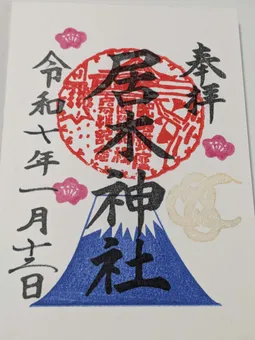 奉拝
居木神社
令和七年一月日